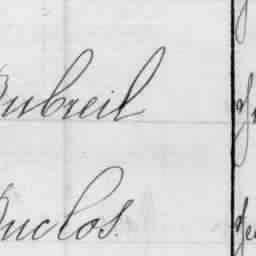 Dubreil
Duclos.